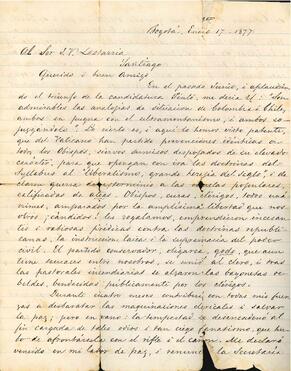 Bogotá, Enero 17. 1877
Al Sr. J. V. Lastarria
Santiago
Querido i buen Amigo
En el pasado Junio, i aplaudien
do el triunfo de la candidatura Pinto, me decia U: "Son
admirables las analogías de situacion de Colombia i Chile,
ambos en pugna con el ultramontanismo, i ambos so-
juzgándolo". Lo cierto es, i aquí lo hemos visto patente,
que del Vaticano han partido provenciones
los Obispos, siervos sumisos despojados de su elevado
carácter, para que opongan con ira las doctrinas del
Syllabus al "liberalismo, grande herejía del siglo", i de
claren guerra a las escuelas populares,
calificadas de ateas. Obispos, curas, clérigos, todos uná
nimes, amparados por la amplísima libertad que nos
otros ¡cándidos! les regalamos, emprendieron incesan
tes i rabiosas prédicas contra las doctrinas republi
canas, la instruccion laica i la supremacia del poder
civil. El partido conservador, oligarca, godo, que aun
tiene raices entre nosotros, se unió al clero, i tras
las pastorales incendiarias se alzaron las bayonetas re
beldes, bendecidas públicamente por los clérigos.
Durante cuatro meses contribuí con todas mis fuer
zas a desbaratar las maquinaciones clericales i salvar
la paz; pero en vano: la tempestad se desencadenó al
fin cargada de tales odios i tan ciego fanatismo, que hu
bo de afrontársela con el rifle i el cañon. Me declaré
vencido en mi labor de paz, i renuncié la Secretaria